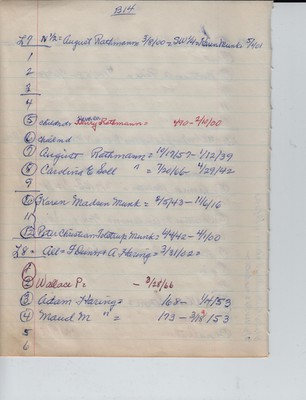 B14
L7 N 1/2 = August Rathmann = 3/8/00 = SW 1/4 = Karen Munk = 5/1/01
1
2
3
4
5 child = Henry Rathmann = 490 - 2/10/00
6 Child
7 August Rathmann = 12/17/57 - 1/12/39
8 Carolina E Soll " = 7/20/66 4/29/42
9
10 Karen Madsen Munk = 2/5/43 - 11/6/16
11
12 Peter Christian Toltrup Munk = 4/4/42 - 4/1/00
L8 = All = F Dunn & A Haring = 3/31/02 =
1
2 Wallace P = - 3/25/66
3 Adam Haring = 168 - 1/14/53
4 Maud M " = 173 - 3/18/53
5
6